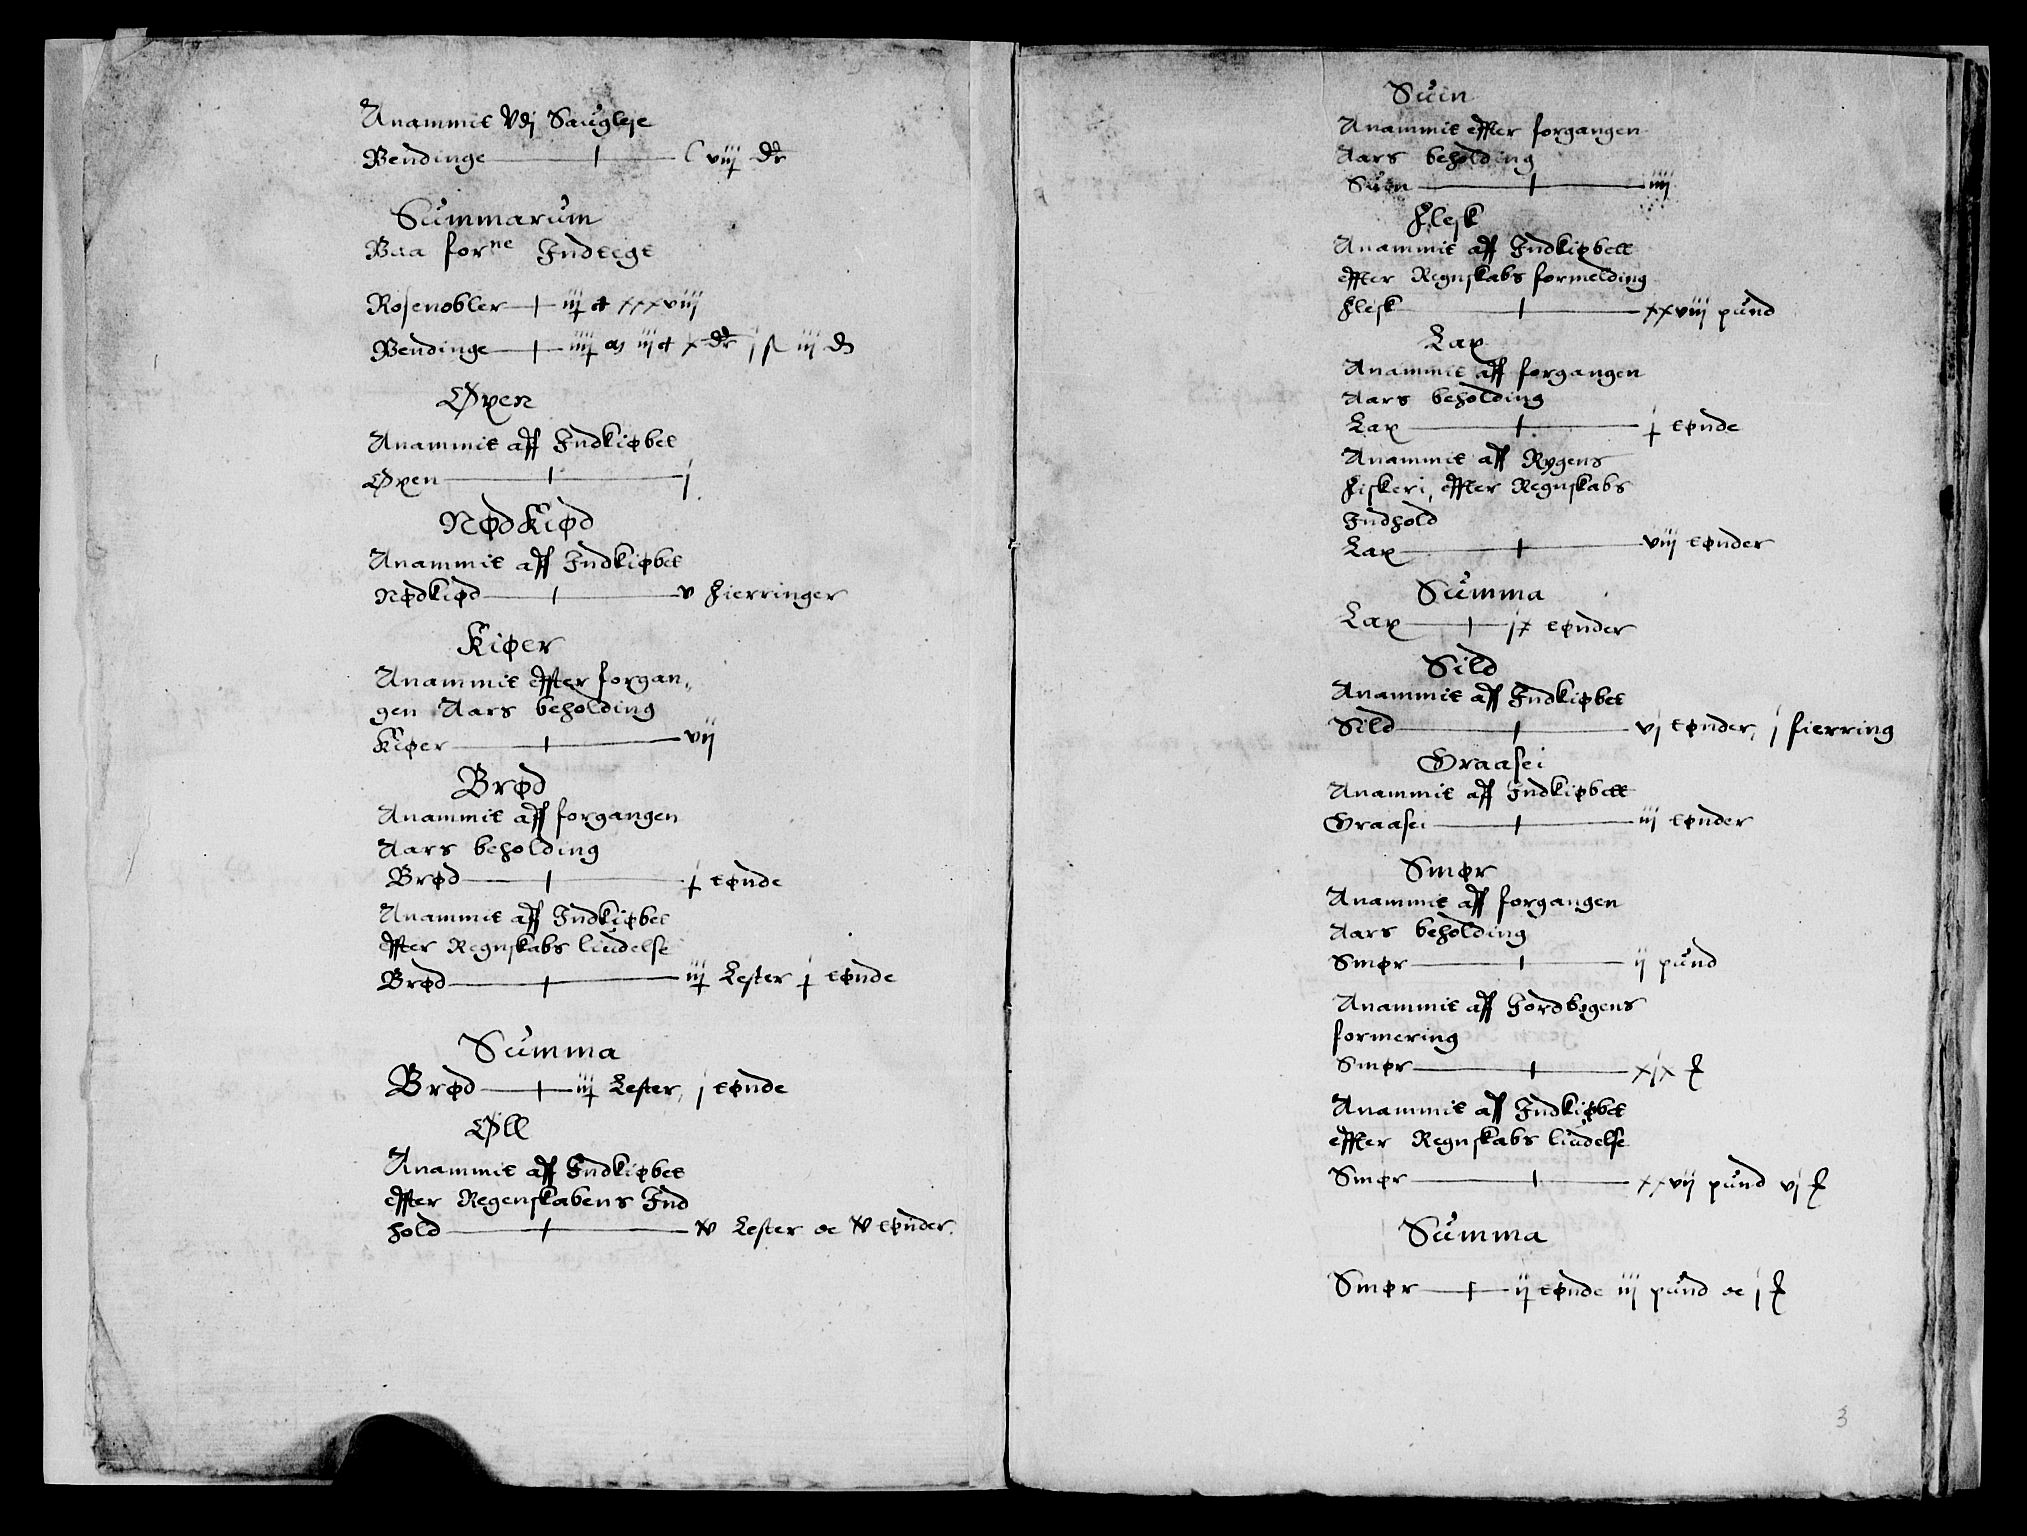 Anammit Vdj Saugleje
Pendinge — C viij dr
Summarum
Paa forne Indtegt
Rosenobler — iij ct xxxviij
Pendinge — iiij m iij ct x dr j s iij d
Øxen
Anammit aff Indkiøbet
Øxen — j
Nødkiød
Anammit aff Indkiøbet
Nødkiød — v fierringer
Kiøer
Anammit effter forgan„
gen Aars beholding
Kiøer — vij
Brød
Anammit aff forgangen
Aars beholding
Brød — j tønde
Anammit aff Indkiøbet
effter Regnskabs liudelse
Brød — iij Lester j tønde
Summa
Brød — iij Lester, j tønde
Øll
Anammit aff Indkiøbet
effter Regenskabens Ind
hold — xv Lester oc xv tønder.
Suin
Anammit effter forgangen
Aars beholding
Suin — iiij
Flesk
Anammit aff Indkiøbett
effter Regnskabs formelding
Flesk — xxviij pund
Lax
Anammit aff forgangen
Aars beholding
Lax — j tønde
Anammit aff Rygens
Fiskeri, effter Regnskabs
Indhold
Lax — viij tønder
Summa
Lax — ix tønder
Sild
Anammit aff Indkiøbet
Sild — vj tønder, j fierring
Graasei
Anammit aff Indkiøbett
Graasei — iij tønder
Smør
Anammit aff forgangen
Aars beholding
Smør — ij pund
Anammit aff Jordbogens
formering
Smør — xix
Anammit aff Indkiøbet
effter Regnskabs liudelse
Smør — xxvij pund vj
Summa
Smør — ij tønde iij pund oc j
3